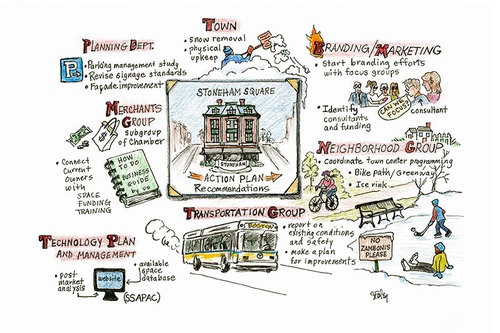 TOWN
• snow removal
• physical
upkeep
PLANNING DEPT.
P
• Parking management study
• Revise signage standards
• Façade improvement
BRANDING/MARKETING
• Start branding efforts
with focus groups
• Identify
consultants
and funding
CAN WE
FOCUS
consultant
MERCHANTS
GROUP
subgroup
of Chamber
• Connect
Current
Owners
with
SPACE
FUNDING
TRAINING
HOW TO
DO
BUSINESS
GUIDE
by US
STONEHAM SQUARE
STONEHAM
ACTION PLAN
Recommendations
NEIGHBORHOOD GROUP
• coordinate town center programming
• Bike path/Greenway
• Ice rink
NO
ZAMBONIS
PLEASE
TRANSPORTATION GROUP
BOSTON
• report on
existing conditions
and safety
• make a plan
for improvements
TECHNOLOGY PLAN
AND MANAGEMENT
• post
market
analysis
website
• available
space
database
(SSAPAC)